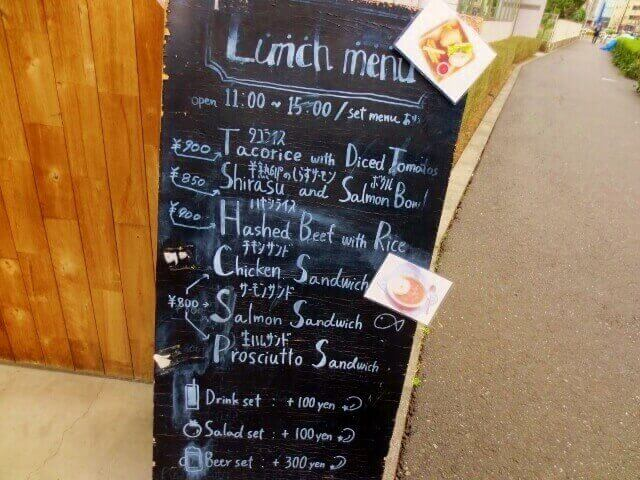 Lunch menu
open 11:00 ~ 15:00 / set menu あり
タコライス
¥900 Tacorice with Diced Tomatoes
しらすサーモン ボウル
¥850 Shirasu and Salmon Bowl
ハヤシライス
¥900 Hashed Beef with Rice
チキンサンド
Chicken Sandwich
サーモンサンド
¥800 Salmon Sandwich
生ハムサンド
Prosciutto Sandwich
Drink set : +100yen
Salad set : +100yen
Beer set : +300yen